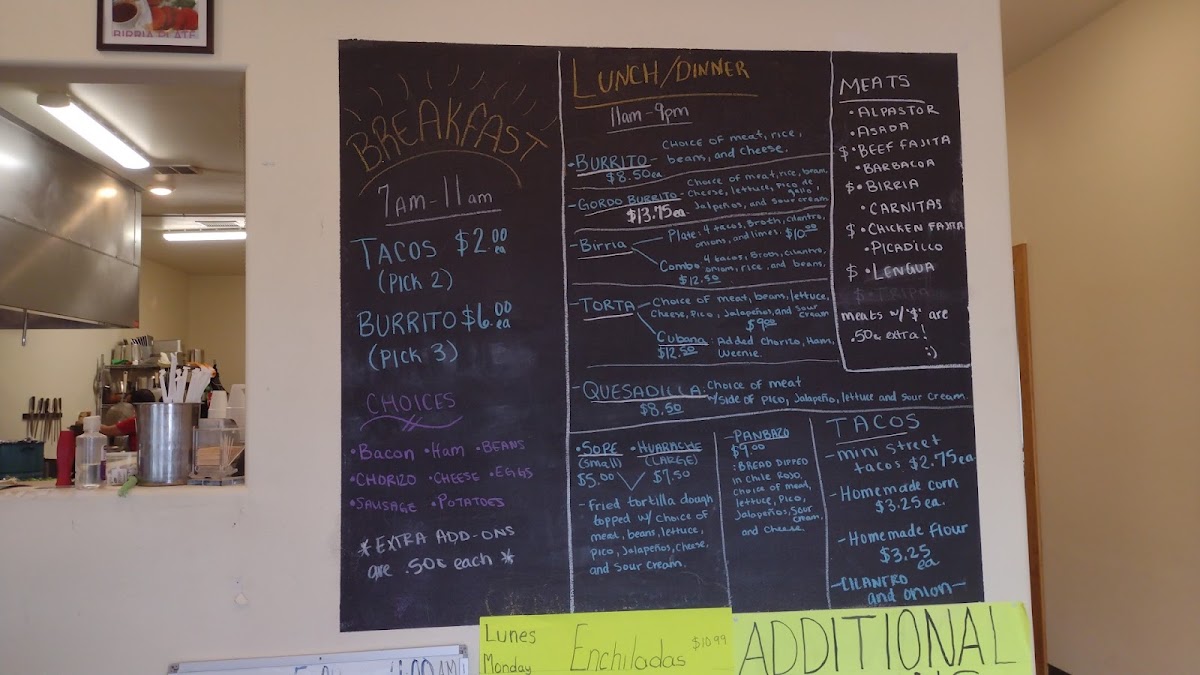 BIRRIA PLATE
BREAKFAST
7am-11am
TACOS $2.00 ea
(Pick 2)
BURRITO $6.00 ea
(Pick 3)
CHOICES
•Bacon •Ham •BEANS
•CHORIZO •CHEESE •EGGS
•SAUSAGE •POTATOES
*EXTRA ADD-ONS
are .50¢ each*
LUNCH/DINNER
11am-9pm
•BURRITO- CHOICE of meat, rice,
beans, and cheese.
$8.50 ea
-GORDO BURRITO- Choice of meat, rice, bean,
Cheese, lettuce, pico de gallo,
Jalpeños, and sour cream
$13.75 ea.
-Birria
Plate: 4 tacos, Broth, cilantro,
onions, and limes. $10.00
Combo: 4 tacos, Broth, cilantro,
onion, rice, and beans.
$12.50
-TORTA
Choice of meat, beans, lettuce,
Cheese, Pico, Jalapeños, and sour cream
$9.00
Cubana: Added Chorizo, Ham,
Weenie.
$12.50
-QUESADILLA: Choice of meat
w/side of PICO, Jalapeño, lettuce and sour cream.
$8.50
•SOPE •HUARACHE
(small) (LARGE)
$5.00 $7.50
-Fried tortilla dough
topped w/ choice of
meat, beans, lettuce,
pico, Jalapeños, cheese,
and sour cream.
-PANBAZO
$9.00
:BREAD DIPPED
in Chile Rojo,
choice of meat,
lettuce, Pico,
Jalapeños, Sour cream,
and cheese.
MEATS
•ALPASTOR
•ASADA
$•BEEF FAJITA
•BARBACOA
$•BIRRIA
•CARNITAS
$•CHICKEN FAJITA
•PICADILLO
$•LENGUA
$•TRIPA
meats w/'$' are
.50¢ extra!
:)
TACOS
-mini street
tacos $2.75 ea
-Homemade corn
$3.25 ea.
-Homemade flour
$3.25 ea
-CILANTRO
and onion-
Lunes
Monday
Enchiladas $10.99
ADDITIONAL